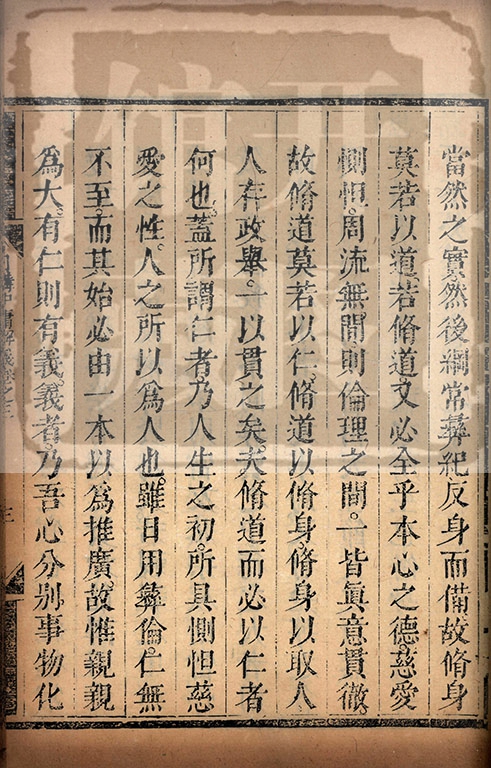 當然之實然後綱常彝紀反身而備故脩身
莫若以道若脩道又必全乎本心之德慈愛
惻怛周流無間則倫理之間一皆眞意貫徹
故脩道莫若以仁脩道以脩身脩身以取人
人存政舉一以貫之矣夫脩道而必以仁者
何也蓋所謂仁者乃人生之初所具惻怛慈
愛之性人之所以爲人也雖日用彝倫仁無
不至而其始必由一本以爲推廣故惟親親
爲大有仁則有義義者乃吾心分别事物化